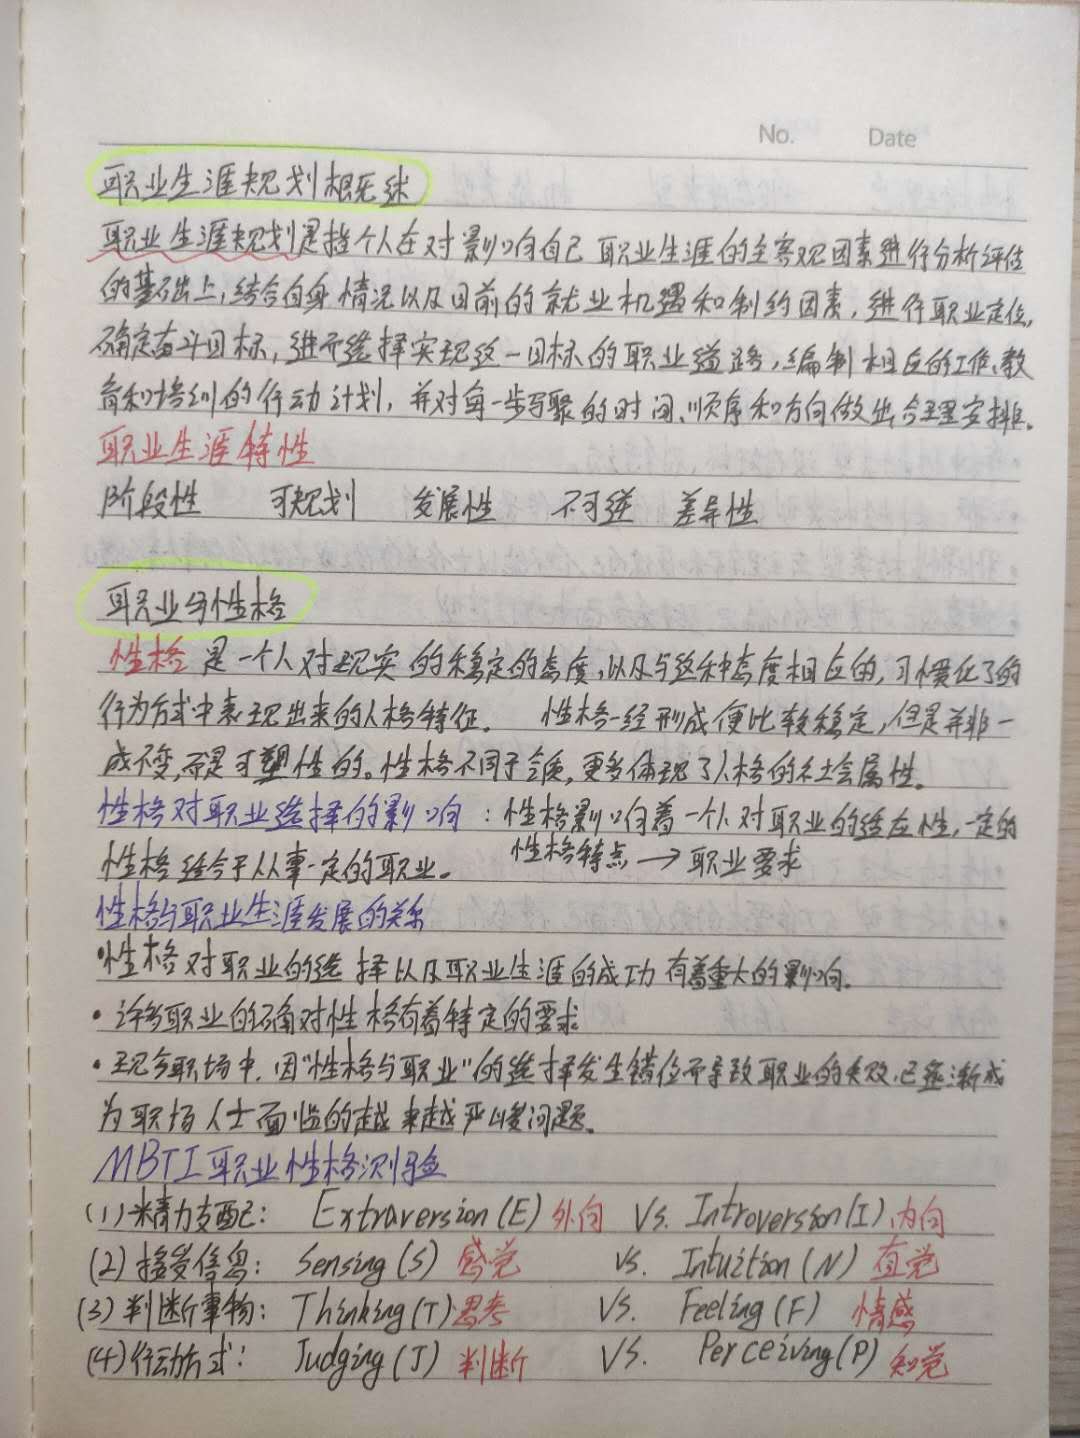 No. Date
职业生涯规划概述
职业生涯规划是指个人在对影响自己职业生涯的主客观因素进行分析评估
的基础上,结合自身情况以及目前的就业机遇和制约因素,进行职业定位,
确定奋斗目标,继而选择实现这一目标的职业道路,编制相应的工作、教
育和培训的行动计划,并对每一步骤的时间、顺序和方向做出合理安排。
职业生涯特性
阶段性 可规划 发展性 不可逆 差异性
职业与性格
性格是一个人对现实的稳定的态度,以及与这种态度相应的,习惯化了的
行为方式中表现出来的人格特征。 性格一经形成便比较稳定,但是并非一
成不变,而是可塑性的。性格不同于气质,更多体现了人格的社会属性。
性格对职业选择的影响:性格影响着一个人对职业的适应性,一定的
性格适合于从事一定的职业。 性格特点→职业要求
性格与职业生涯发展的关系
•性格对职业的选择以及职业生涯的成功有着重大的影响。
•许多职业的确对性格有着特定的要求
•现今职场中,因“性格与职业”的选择发生错位而导致职业的失败,已逐渐成
为职场人士面临的越来越严峻问题。
MBTI职业性格测验
(1)精力支配: Extraversion(E)外向 VS. Introversion(I)内向
(2)接受信息: Sensing(S) 感觉 VS. Intuition(N) 直觉
(3)判断事物: Thinking(T)思考 VS. Feeling(F) 情感
(4)行动方式: Judging(J) 判断 VS. Perceiving(P) 知觉